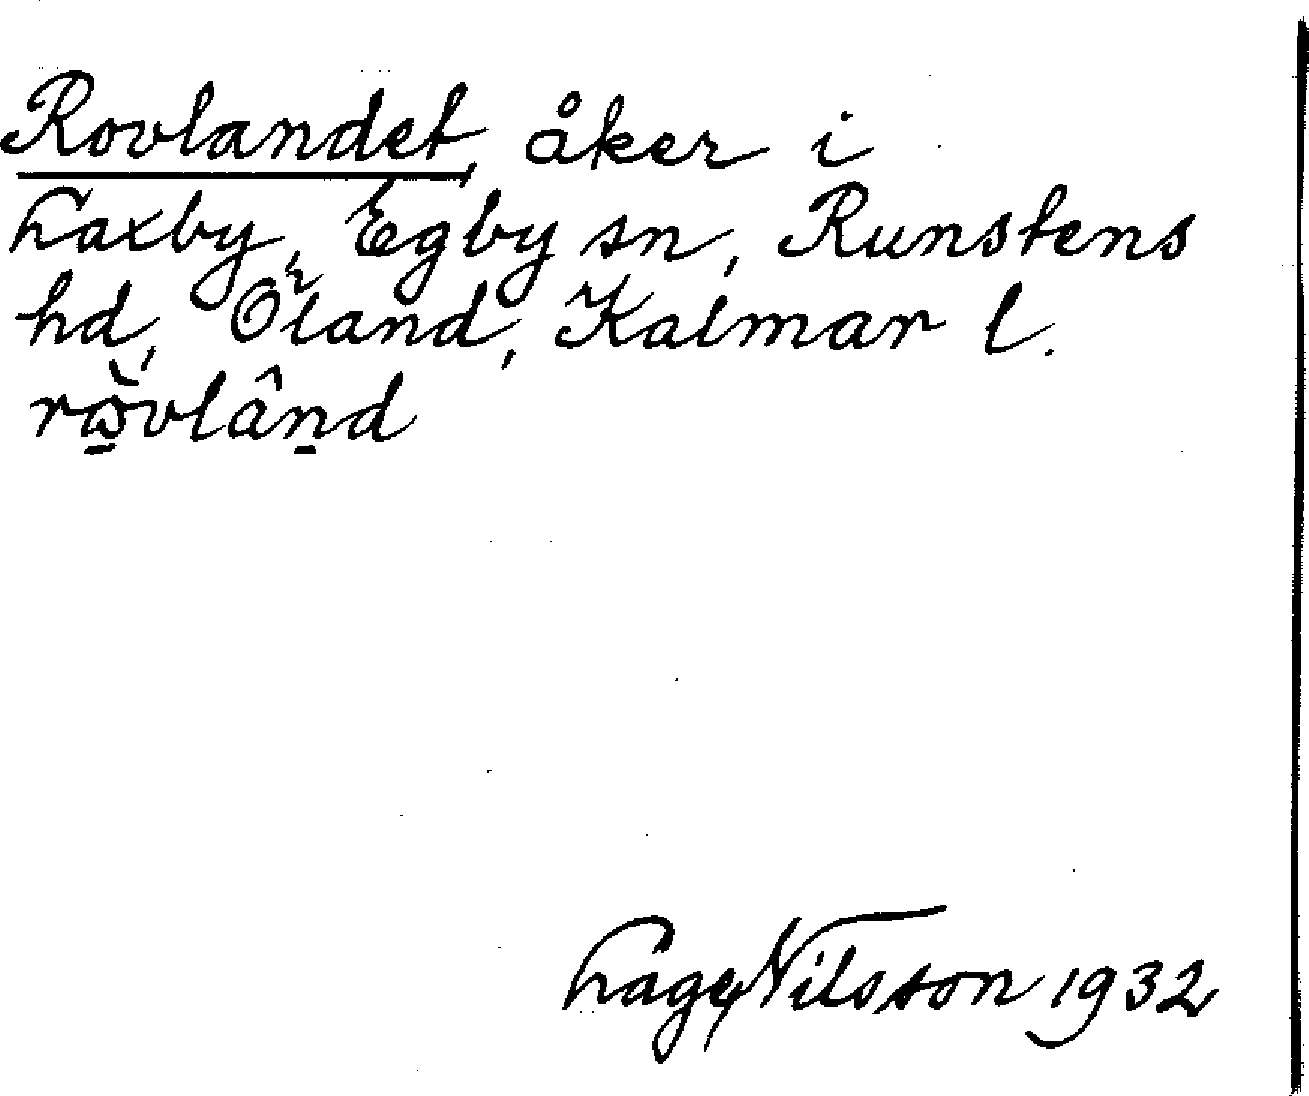 Rovlandet, åker i
Laxby, Egby sn, Runstens
hd, Öland, Kalmar l.
Lage Nilsson 1932